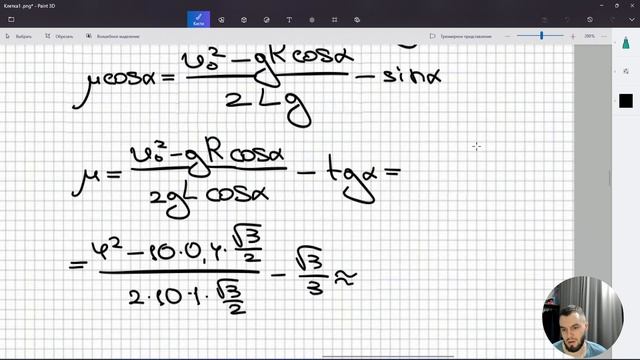 Клетка1.png* - Paint 3D
Кисти
Выбрать Обрезать Волшебное выделение Трехмерное представление 200%
μcosα = (v₀² - gRcosα)/(2Lg) - sinα
μ = (v₀² - gRcosα)/(2gL cosα) - tgα =
= (4² - 10·0,4·√3/2)/(2·10·1·√3/2) - √3/3 ≈